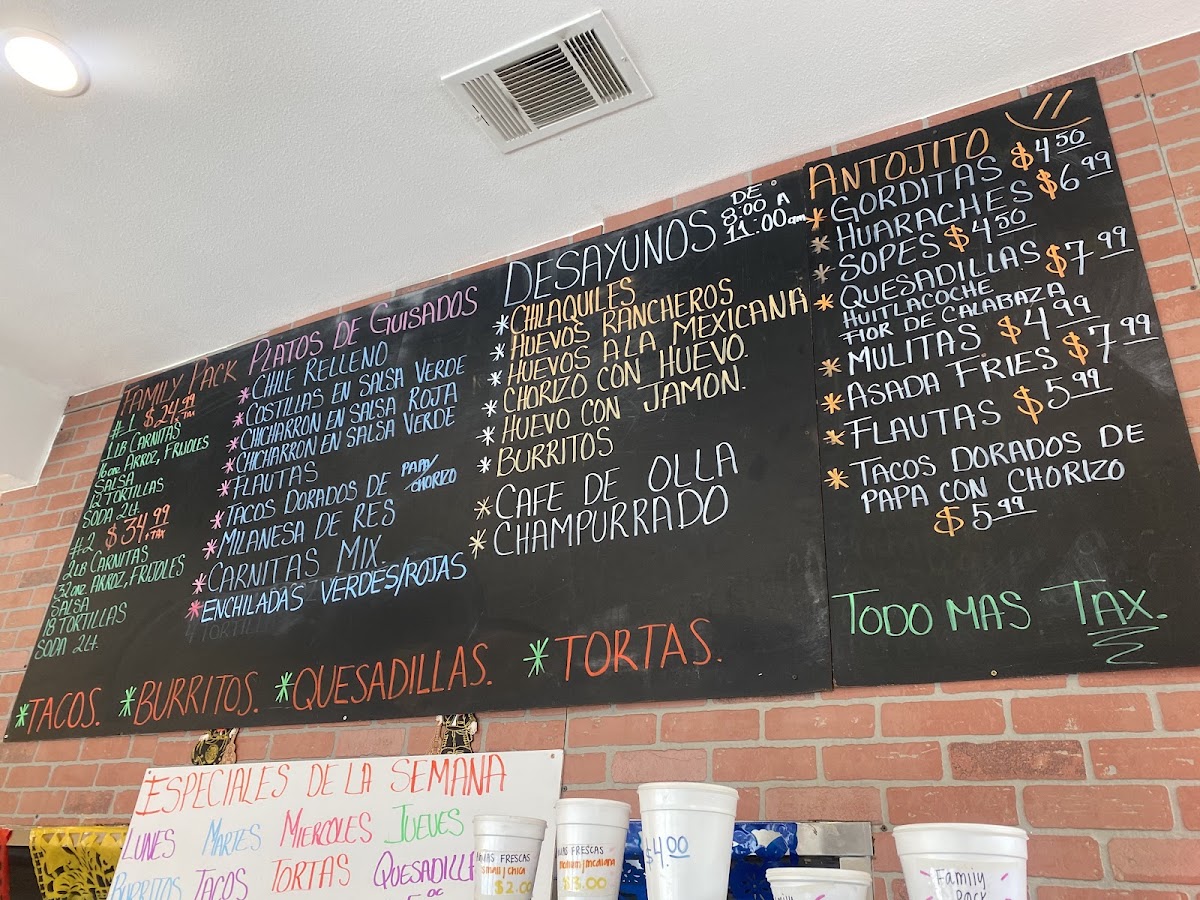 FAMILY PACK
#1 $24.99
+TAX
1 LB CARNITAS
16 onz. ARROZ, FRIJOLES
SALSA
12 TORTILLAS
SODA 2Lt.
#2 $34.99
+TAX
2LB CARNITAS
32 onz. ARROZ, FRIJOLES
SALSA
18 TORTILLAS
SODA 2Lt.
PLATOS DE GUISADOS
* CHILE RELLENO
* COSTILLAS EN SALSA VERDE
* CHICHARRON EN SALSA ROJA
* CHICHARRON EN SALSA VERDE
* FLAUTAS
* TACOS DORADOS DE PAPA/
CHORIZO
* MILANESA DE RES
* CARNITAS MIX
* ENCHILADAS VERDES/ROJAS
DESAYUNOS DE:
8:00 A
11:00am
* CHILAQUILES
* HUEVOS RANCHEROS
* HUEVOS A LA MEXICANA
* CHORIZO CON HUEVO.
* HUEVO CON JAMON.
* BURRITOS
* CAFE DE OLLA
* CHAMPURRADO
ANTOJITO
* GORDITAS $4.50
* HUARACHES $6.99
* SOPES $4.50
* QUESADILLAS $7.99
HUITLACOCHE
FLOR DE CALABAZA
* MULITAS $4.99
* ASADA FRIES $7.99
* FLAUTAS $5.99
* TACOS DORADOS DE
PAPA CON CHORIZO
$5.99
TODO MAS TAX.
* TACOS. * BURRITOS. * QUESADILLAS. * TORTAS.
ESPECIALES DE LA SEMANA
LUNES MARTES MIERCOLES JUEVES
BURRITOS TACOS TORTAS QUESADILL
FRESCAS
small/chica
$2.00
FRESCAS
medium/mediana
$3.00
$4.00
AGUAS FRESCAS
Family
Pack